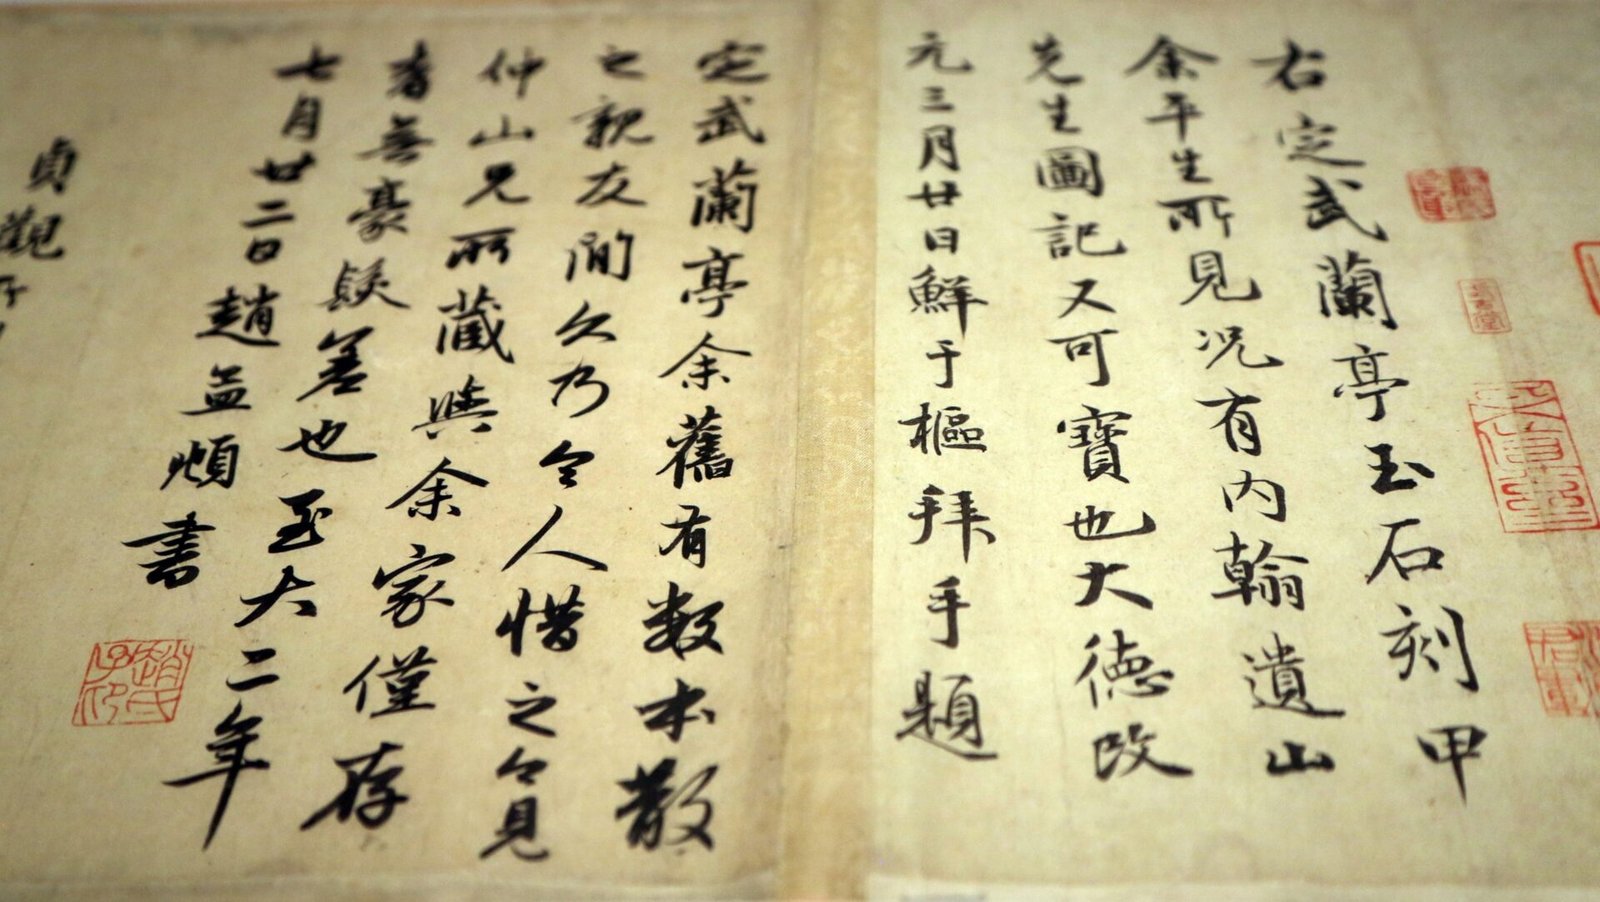 右定武蘭亭玉石刻甲
余平生所見況有內翰遺山
先生圖記又可寶也大德改
元三月廿日鮮于樞拜手題
定武蘭亭余舊有數本散
之親友間久乃令人惜之今見
仲山兄所藏與余家僅存
者無豪髮差也至大二年
七月廿二日趙孟頫書
貞觀
趙氏子昂